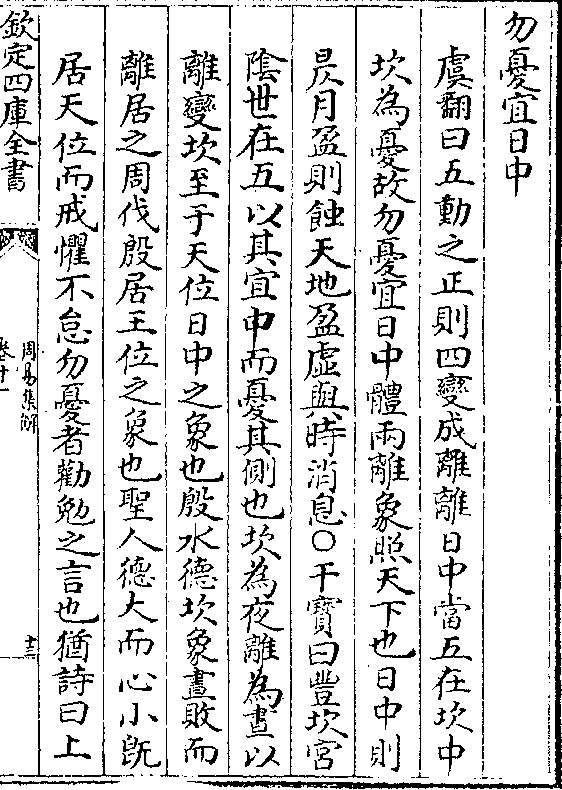 勿憂宜日中
虞翻曰五動之正則四變成離離日中當五在坎中
坎為憂故勿憂宜日中體兩離象照天下也日中則
昃月盈則蝕天地盈虛與時消息○干寶曰豐坎宮
陰世在五以其宜中而憂其側也坎為夜離為晝以
離變坎至于天位日中之象也殷水德坎象晝敗而
離居之周伐殷居王位之象也聖人德大而心小旣
居天位而戒懼不怠勿憂者勸勉之言也猶詩曰上
欽定四庫全書
周易集解
卷十一
十三